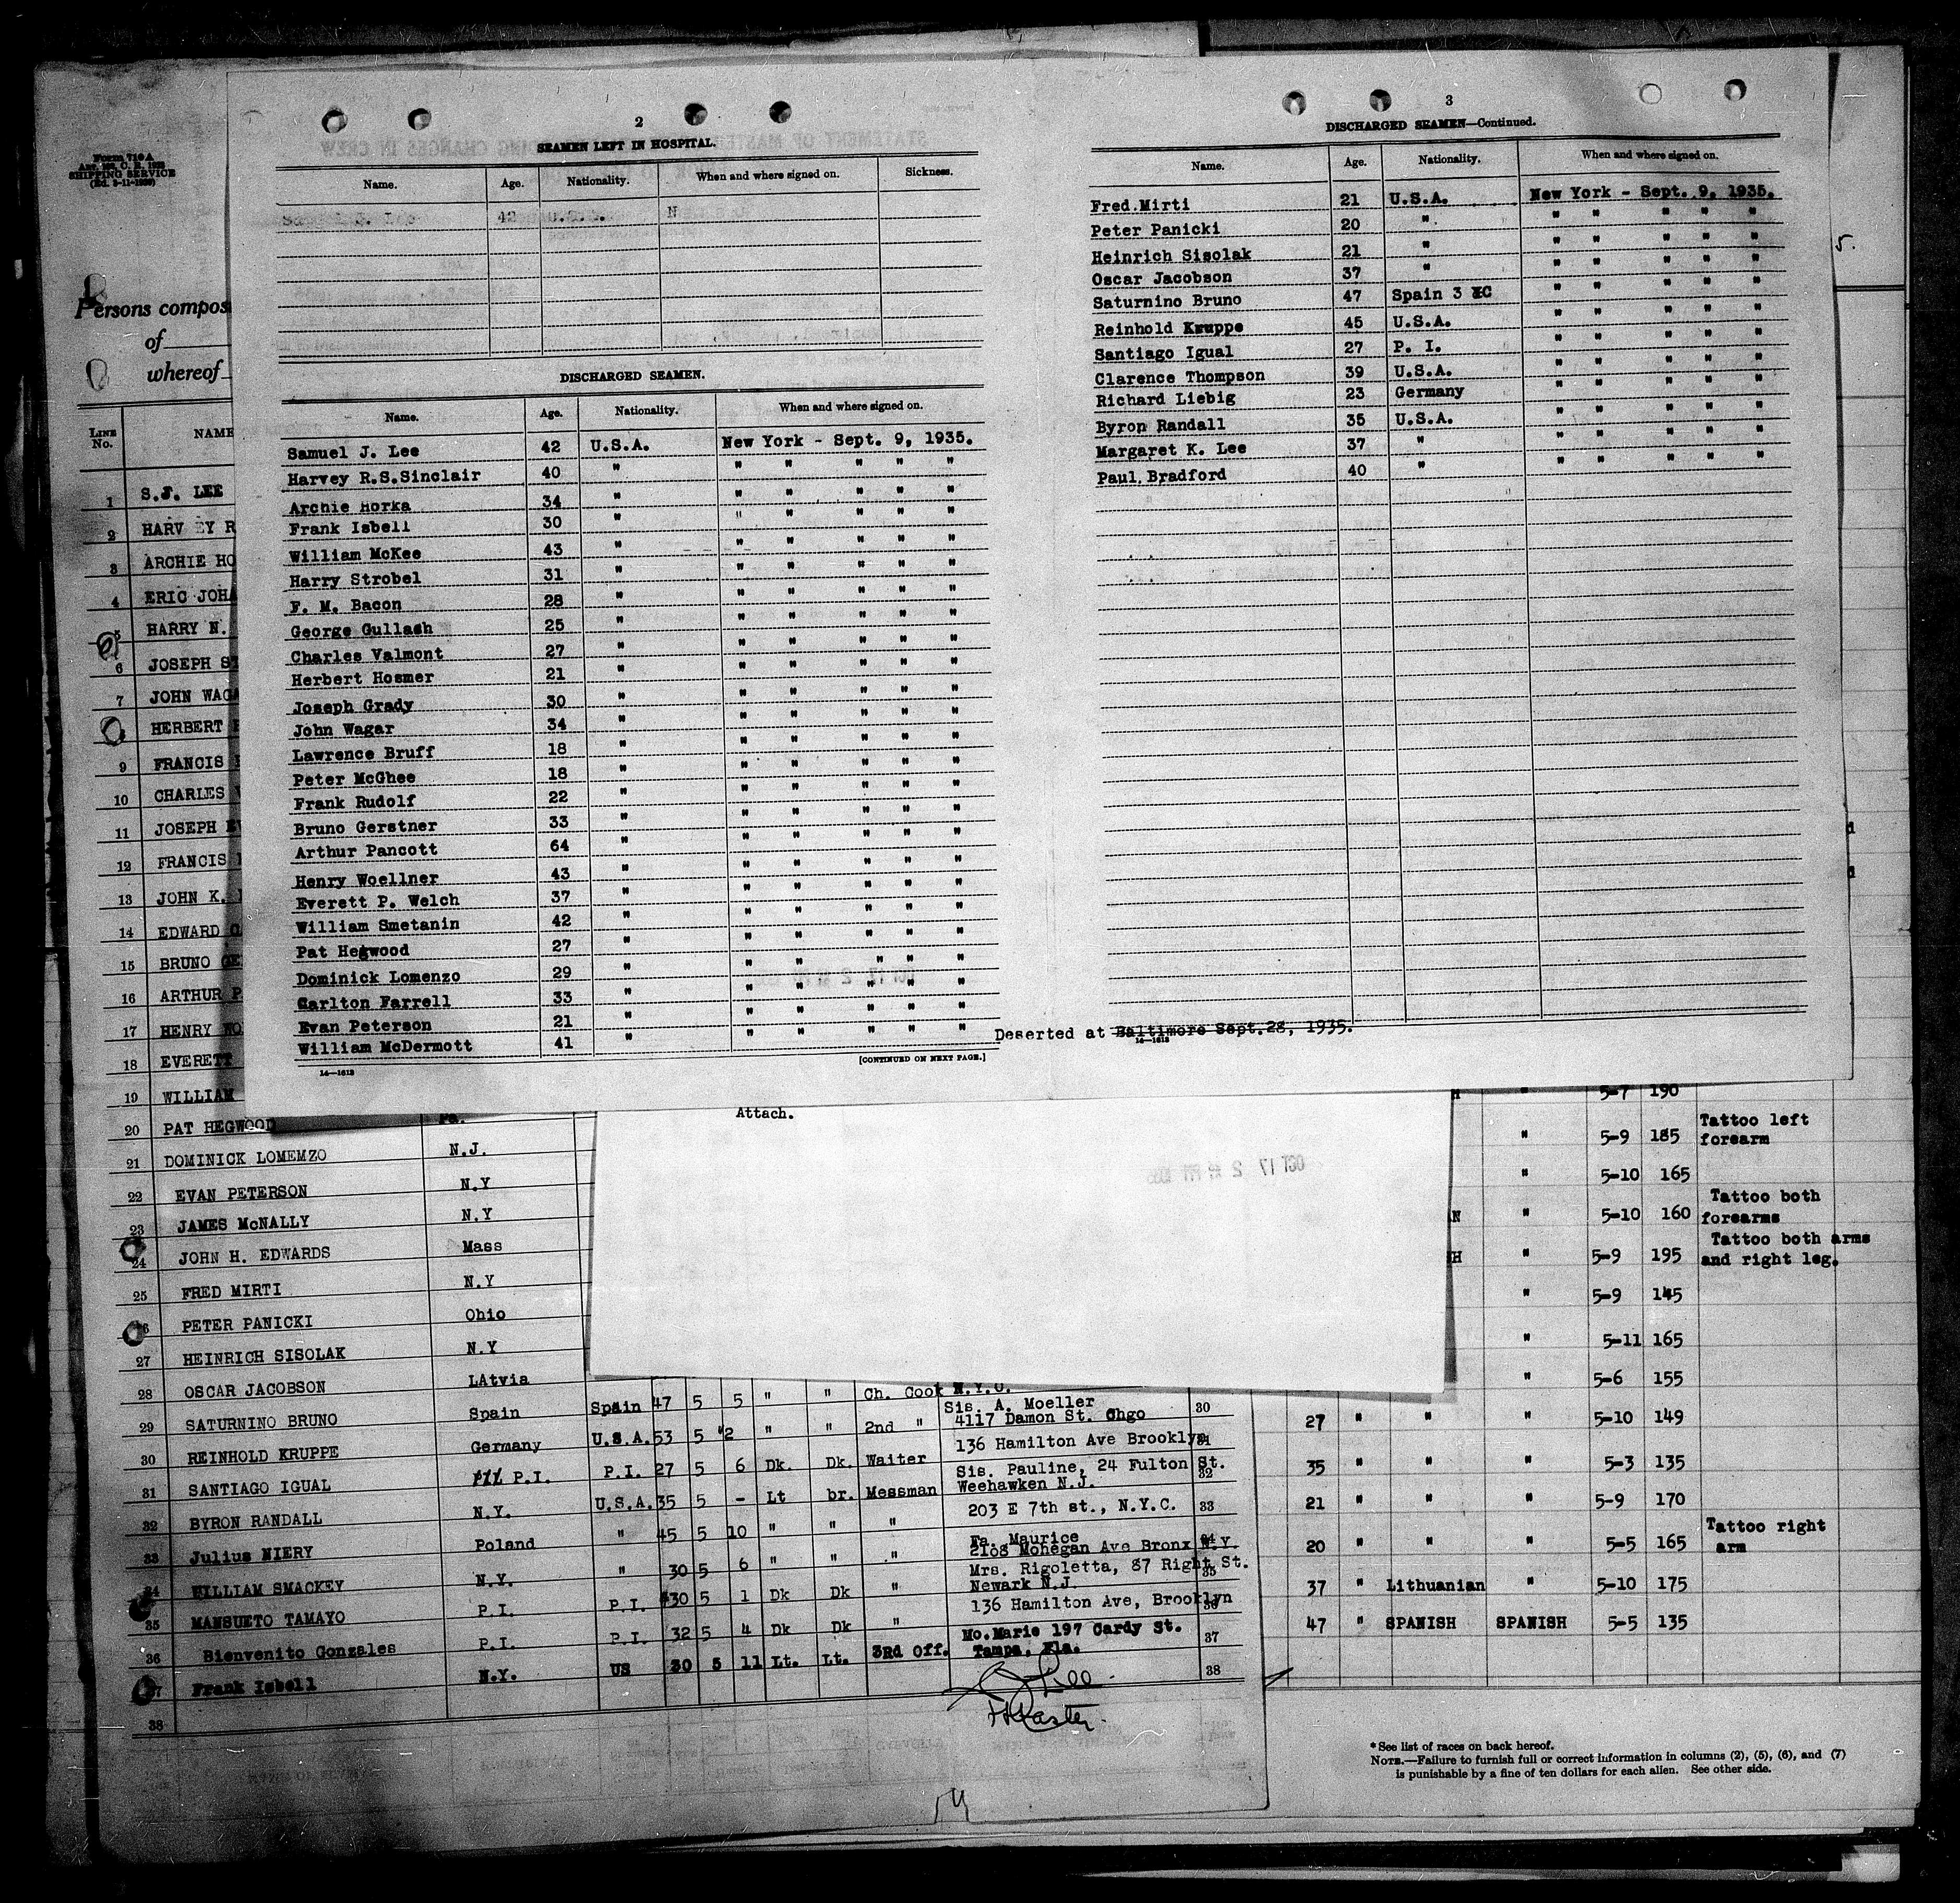 2
SEAMEN LEFT IN HOSPITAL.
Name. Age. Nationality. When and where signed on. Sickness.
42 U.S.A. N
DISCHARGED SEAMEN.
Name. Age. Nationality. When and where signed on.
Samuel J. Lee 42 U.S.A. New York - Sept. 9, 1935.
Harvey R.S.Sinclair 40 " " " " " "
Archie Horka 34 " " " " " "
Frank Isbell 30 " " " " " "
William McKee 43 " " " " " "
Harry Strobel 31 " " " " " "
F. M. Bacon 28 " " " " " "
George Gullash 25 " " " " " "
Charles Valmont 27 " " " " " "
Herbert Hosmer 21 " " " " " "
Joseph Grady 30 " " " " " "
John Wagar 34 " " " " " "
Lawrence Bruff 18 " " " " " "
Peter McGhee 18 " " " " " "
Frank Rudolf 22 " " " " " "
Bruno Gerstner 33 " " " " " "
Arthur Pancott 64 " " " " " "
Henry Woellner 43 " " " " " "
Everett P. Welch 37 " " " " " "
William Smetanin 42 " " " " " "
Pat Hegwood 27 " " " " " "
Dominick Lomenzo 29 " " " " " "
Carlton Farrell 33 " " " " " "
Evan Peterson 21 " " " " " "
William McDermott 41 " " " " " " Deserted at Baltimore Sept.28, 1935.
14-1613
[CONTINUED ON NEXT PAGE.]
3
DISCHARGED SEAMEN—Continued.
Name. Age. Nationality. When and where signed on.
Fred Mirti 21 U.S.A. New York - Sept. 9, 1935.
Peter Panicki 20 " " " " " "
Heinrich Sisolak 21 " " " " " "
Oscar Jacobson 37 " " " " " "
Saturnino Bruno 47 Spain 3 C " " " " "
Reinhold Kruppe 45 U.S.A. " " " " "
Santiago Igual 27 P. I. " " " " "
Clarence Thompson 39 U.S.A. " " " " "
Richard Liebig 23 Germany " " " " "
Byron Randall 35 U.S.A. " " " " "
Margaret K. Lee 37 " " " " " "
Paul Bradford 40 " " " " " "
14-1613
Form 710 A
SHIPPING SERVICE
Persons compos
of
whereof
LINE No. NAME
1 S.J. LEE
2 HARV EY R
3 ARCHIE HO
4 ERIC JOHA
5 HARRY N.
6 JOSEPH ST
7 JOHN WAGA
HERBERT
9 FRANCIS
10 CHARLES V
11 JOSEPH
12 FRANCIS
13 JOHN K.
14 EDWARD
15 BRUNO GE
16 ARTHUR P
17 HENRY WO
18 EVERETT
19 WILLIAM
20 PAT HEGWOOD Pa.
21 DOMINICK LOMEMZO N.J.
22 EVAN PETERSON N.Y
23 JAMES McNALLY N.Y
24 JOHN H. EDWARDS Mass
25 FRED MIRTI N.Y
26 PETER PANICKI Ohio
27 HEINRICH SISOLAK N.Y
28 OSCAR JACOBSON LAtvia
29 SATURNINO BRUNO Spain Spain 47 5 5 " " Ch. Cook N.Y.C.
30 REINHOLD KRUPPE Germany U.S.A. 53 5 2 " " 2nd " Sis. A. Moeller 4117 Damon St. Chgo 30
31 SANTIAGO IGUAL P.I. P.I. 27 5 6 Dk. Dk. Waiter 136 Hamilton Ave Brooklyn 31
32 BYRON RANDALL N.Y. U.S.A. 35 5 - Lt br. Messman Sis. Pauline, 24 Fulton St. Weehawken N.J. 32
33 Julius NIERY Poland " 45 5 10 " " " 203 E 7th st., N.Y.C. 33
34 WILLIAM SMACKEY N.Y. " 30 5 6 " " " Fa. Maurice 2108 Mohegan Ave Bronx N.Y. 34
35 MANSUETO TAMAYO P.I. P.I. 30 5 1 Dk Dk " Mrs. Rigoletta, 87 Right St. Newark N.J. 35
36 Bienvenito Gonzales P.I. P.I. 32 5 4 Dk Dk " 136 Hamilton Ave, Brooklyn 36
37 Frank Isbell N.Y. US 30 5 11 Lt. Lt. 3Rd Off. Mo.Marie 197 Cardy St. Tampa, Fla. 37
38 38
Lee
Master.
Attach.
OCT 17 2
5.
5-7 190
" 5-9 185 Tattoo left forearm
" 5-10 165
N " 5-10 160 Tattoo both forearms
H " 5-9 195 Tattoo both arms and right leg.
" 5-9 145
" 5-11 165
" 5-6 155
27 " " 5-10 149
35 " " 5-3 135
21 " " 5-9 170
20 " " 5-5 165 Tattoo right arm
37 " Lithuanian " 5-10 175
47 " SPANISH SPANISH 5-5 135
* See list of races on back hereof.
NOTE.—Failure to furnish full or correct information in columns (2), (5), (6), and (7)
is punishable by a fine of ten dollars for each alien. See other side.